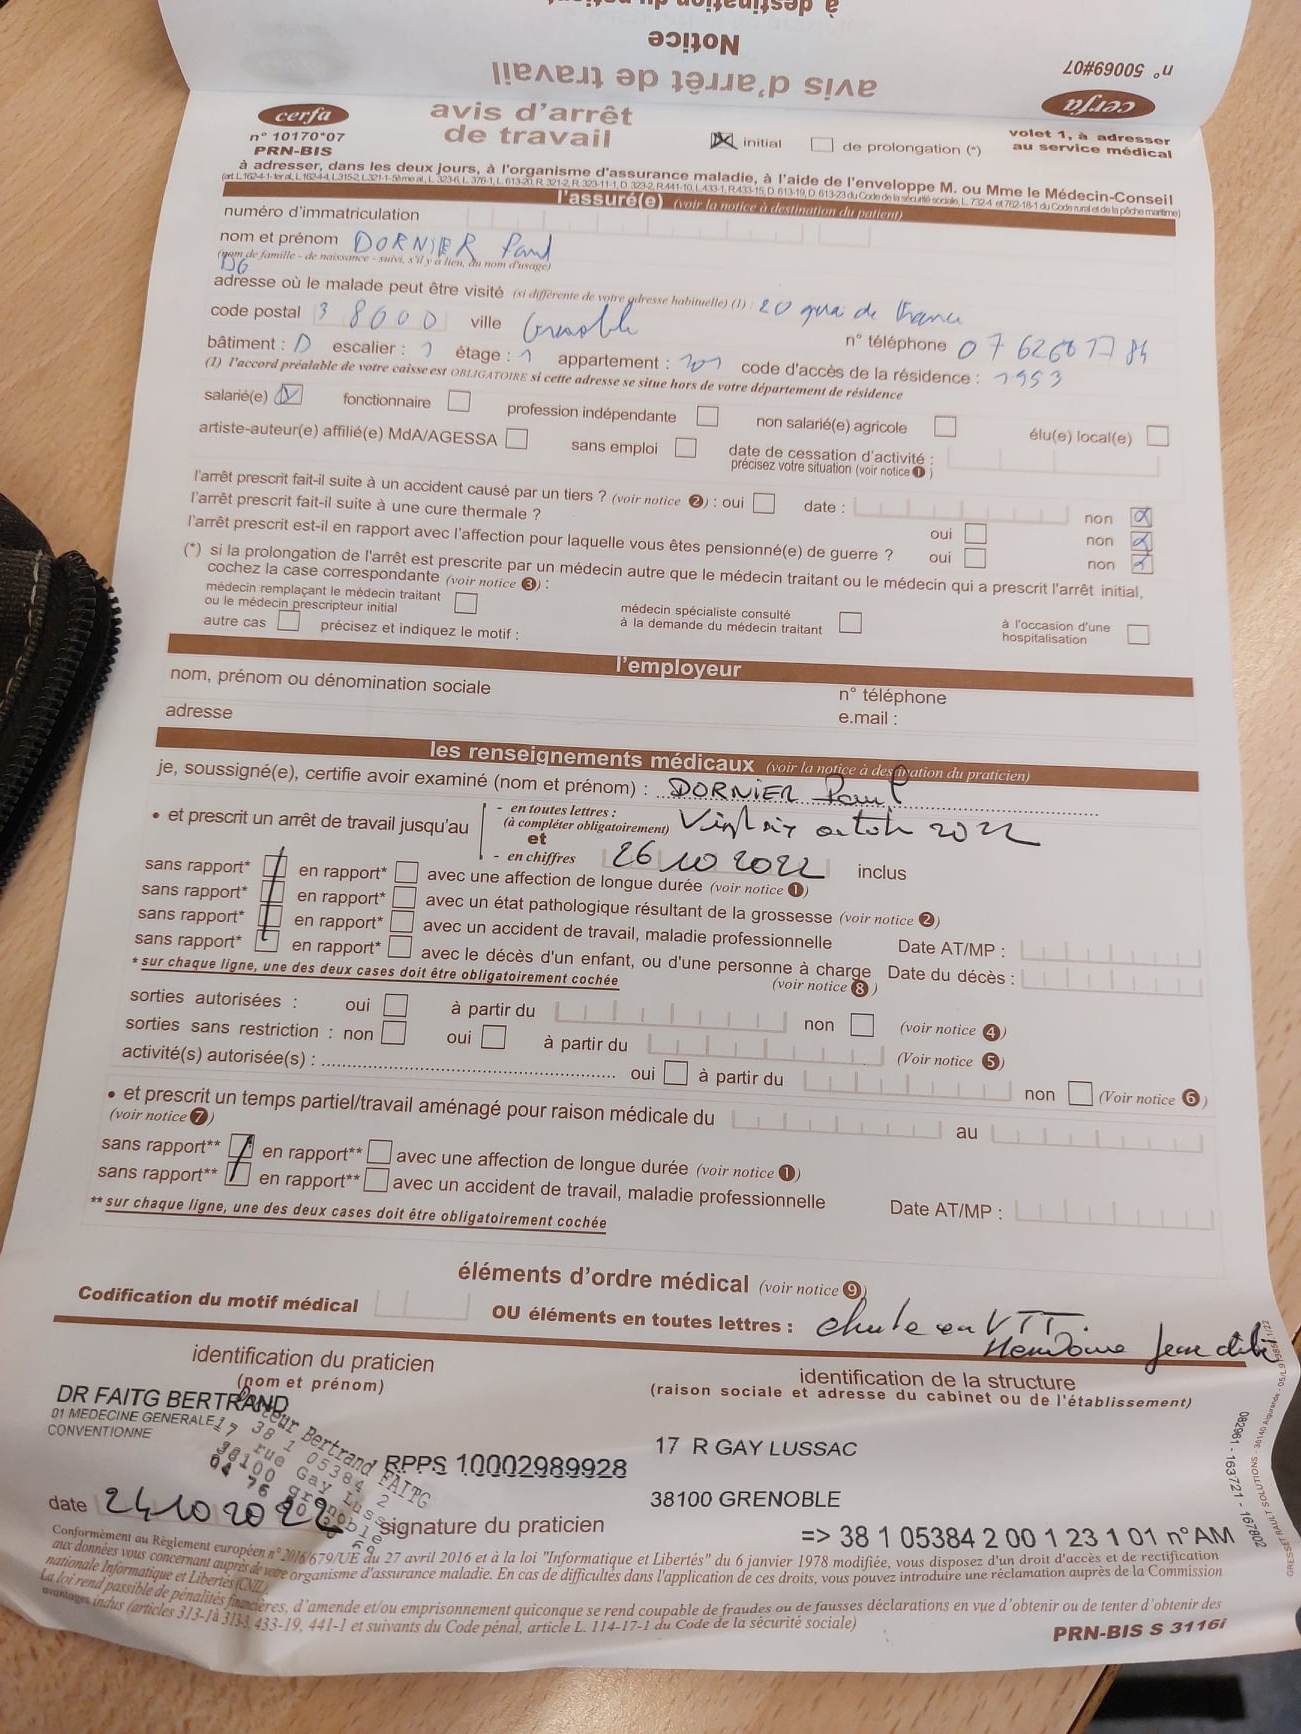 à destination du patient
Notice
avis d'arrêt de travail
n° 50069#07
cerfa
cerfa
n° 10170*07
PRN-BIS
avis d'arrêt
de travail
initial
de prolongation (*)
volet 1, à adresser
au service médical
à adresser, dans les deux jours, à l'organisme d'assurance maladie, à l'aide de l'enveloppe M. ou Mme le Médecin-Conseil
l'assuré(e) (voir la notice à destination du patient)
numéro d'immatriculation
nom et prénom DORNIER Paul
(nom de famille - de naissance - suivi, s'il y a lieu, du nom d'usage)
DG
adresse où le malade peut être visité (si différente de votre adresse habituelle) (1) : 20 quai de France
code postal 38000 ville Grenoble n° téléphone
bâtiment : D escalier : 1 étage : 1 appartement : 101 code d'accès de la résidence : 1953
(1) l'accord préalable de votre caisse est OBLIGATOIRE si cette adresse se situe hors de votre département de résidence
salarié(e) fonctionnaire profession indépendante non salarié(e) agricole élu(e) local(e)
artiste-auteur(e) affilié(e) MdA/AGESSA sans emploi date de cessation d'activité :
précisez votre situation (voir notice 1)
l'arrêt prescrit fait-il suite à un accident causé par un tiers ? (voir notice 2) : oui date : non
l'arrêt prescrit fait-il suite à une cure thermale ? oui non
l'arrêt prescrit est-il en rapport avec l'affection pour laquelle vous êtes pensionné(e) de guerre ? oui non
(*) si la prolongation de l'arrêt est prescrite par un médecin autre que le médecin traitant ou le médecin qui a prescrit l'arrêt initial,
cochez la case correspondante (voir notice 3) :
médecin remplaçant le médecin traitant
ou le médecin prescripteur initial
médecin spécialiste consulté
à la demande du médecin traitant
à l'occasion d'une
hospitalisation
autre cas précisez et indiquez le motif :
l'employeur
nom, prénom ou dénomination sociale n° téléphone
adresse e.mail :
les renseignements médicaux (voir la notice à destination du praticien)
je, soussigné(e), certifie avoir examiné (nom et prénom) : DORNIER Paul
• et prescrit un arrêt de travail jusqu'au
- en toutes lettres :
(à compléter obligatoirement) Vingt six octobre 2022
et
- en chiffres 26 10 2022 inclus
sans rapport* en rapport* avec une affection de longue durée (voir notice 1)
sans rapport* en rapport* avec un état pathologique résultant de la grossesse (voir notice 2)
sans rapport* en rapport* avec un accident de travail, maladie professionnelle Date AT/MP :
sans rapport* en rapport* avec le décès d'un enfant, ou d'une personne à charge Date du décès :
(voir notice 8)
* sur chaque ligne, une des deux cases doit être obligatoirement cochée
sorties autorisées : oui à partir du non (voir notice 4)
sorties sans restriction : non oui à partir du (Voir notice 5)
activité(s) autorisée(s) : oui à partir du non (Voir notice 6)
• et prescrit un temps partiel/travail aménagé pour raison médicale du au
(voir notice 7)
sans rapport** en rapport** avec une affection de longue durée (voir notice 1)
sans rapport** en rapport** avec un accident de travail, maladie professionnelle Date AT/MP :
** sur chaque ligne, une des deux cases doit être obligatoirement cochée
éléments d'ordre médical (voir notice 9)
Codification du motif médical OU éléments en toutes lettres : chute en VTT.
identification du praticien
(nom et prénom)
identification de la structure
(raison sociale et adresse du cabinet ou de l'établissement)
DR FAITG BERTRAND
01 MEDECINE GENERALE
CONVENTIONNE
Docteur Bertrand FAITG
38 1 05384 2
17 rue Gay Lussac
38100 grenoble
RPPS 10002989928
17 R GAY LUSSAC
38100 GRENOBLE
date 24 10 2022 signature du praticien
=> 38 1 05384 2 00 1 23 1 01 n°AM
Conformément au Règlement européen n° 2016/679/UE du 27 avril 2016 et à la loi "Informatique et Libertés" du 6 janvier 1978 modifiée, vous disposez d'un droit d'accès et de rectification
aux données vous concernant auprès de votre organisme d'assurance maladie. En cas de difficultés dans l'application de ces droits, vous pouvez introduire une réclamation auprès de la Commission
nationale Informatique et Libertés (CNIL)
La loi rend passible de pénalités financières, d'amende et/ou emprisonnement quiconque se rend coupable de fraudes ou de fausses déclarations en vue d'obtenir ou de tenter d'obtenir des
avantages indus (articles 313-1 à 313-3, 433-19, 441-1 et suivants du Code pénal, article L. 114-17-1 du Code de la sécurité sociale)
PRN-BIS S 3116i
082961 - 163721 - 167802